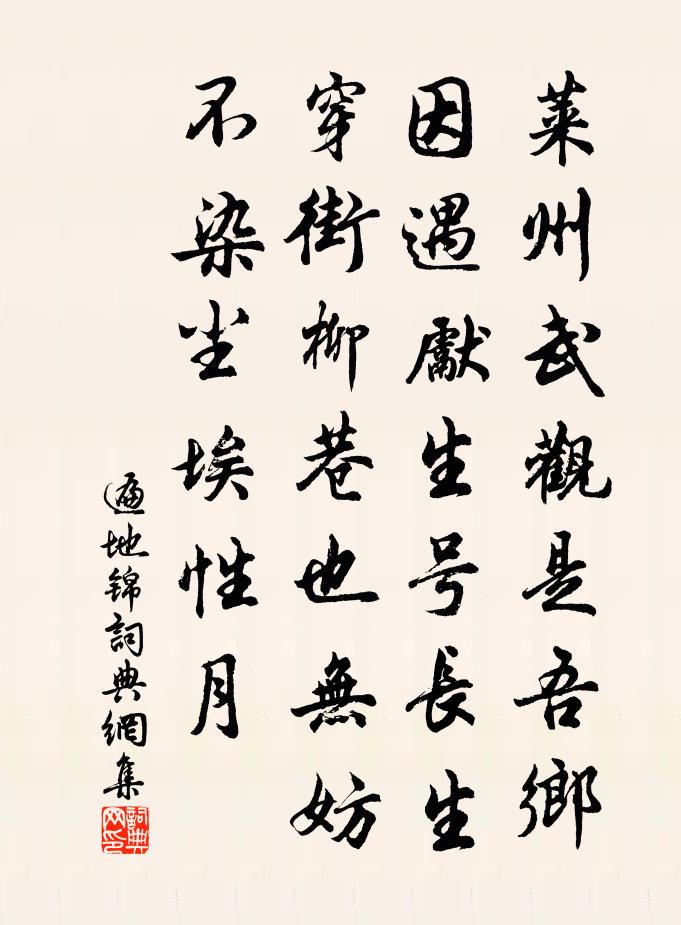 莱州武觀是吾鄉
因遇獻生号長生
穿街柳巷也無妨
不染尘埃性月
遍地锦詞典網集
詞典
网印